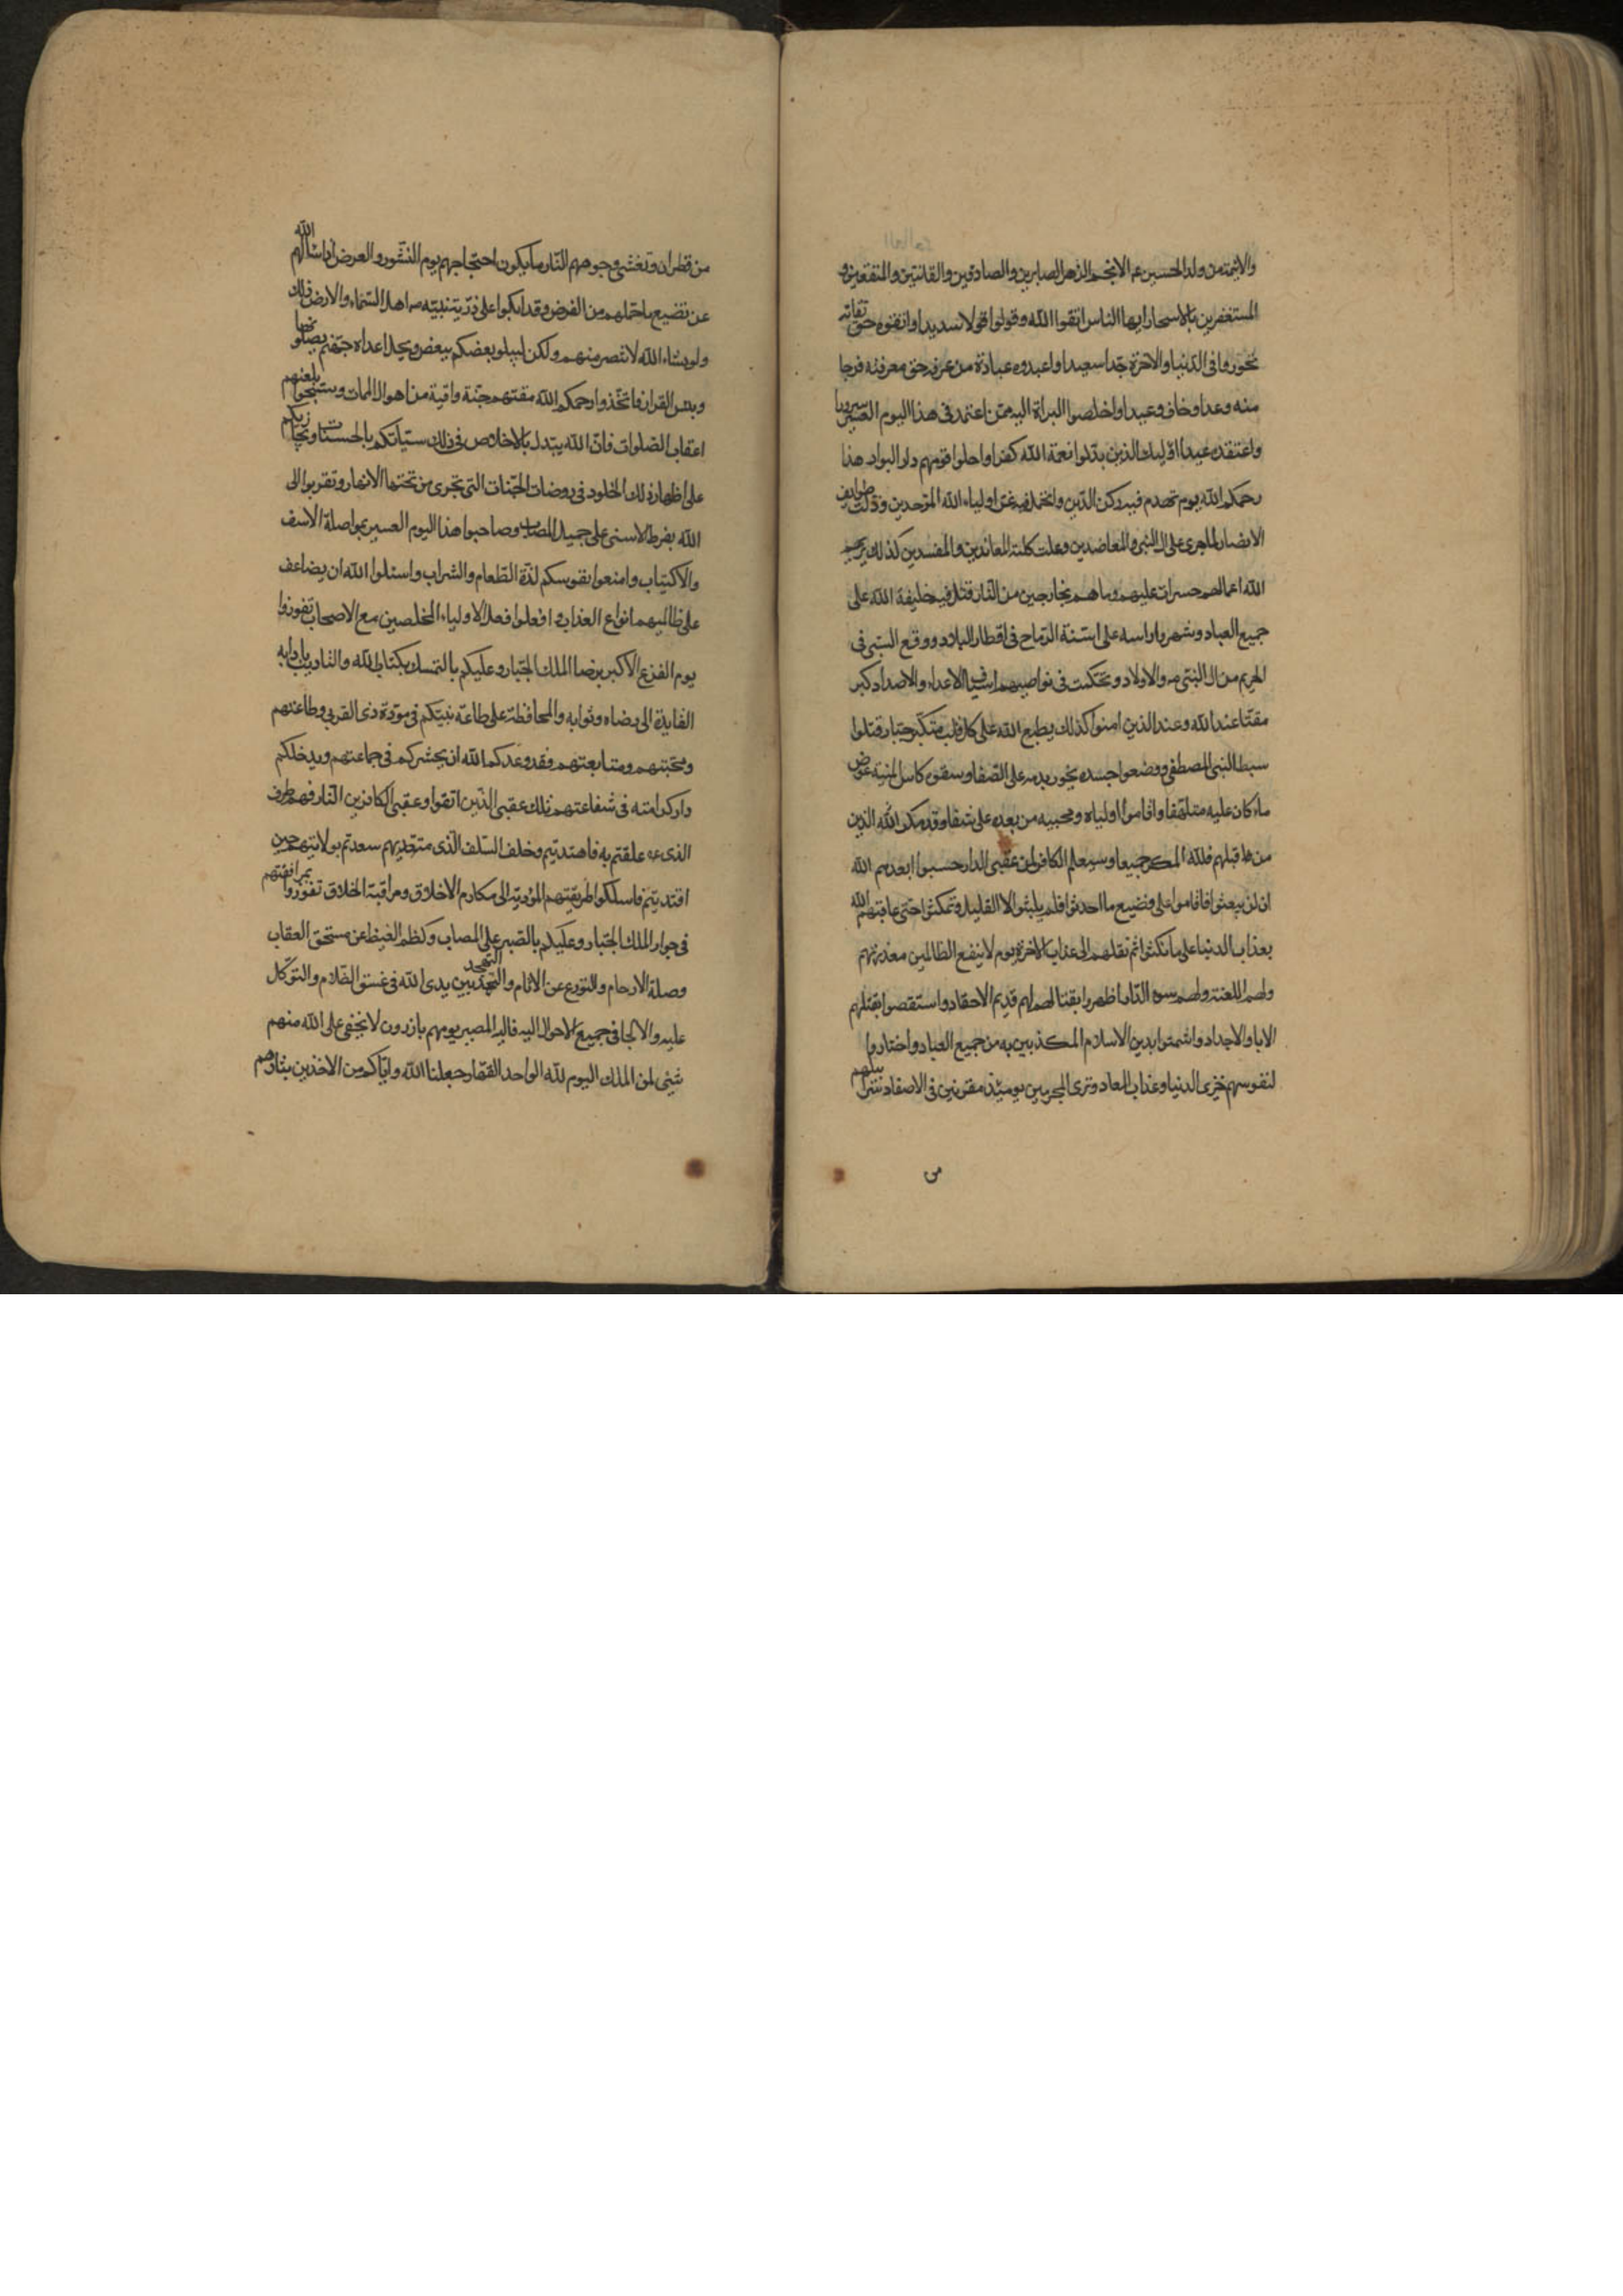 والائمة من ولد الحسين عم الانجم الزهر الصابرين والصادقين والقانتين والمنفقين و
المستغفرين بالاسحار ايها الناس اتقوا الله وقولوا قولا سديدا واتقوه حق تقاته
تحوزوا فى الدنيا والاخرة جدا سعيدا واعبدوه عبادة من عرفه حق معرفته فرجا
منه وعدا وخاف وعيدا واخلصوا البراة اليه ممن اعتمد فى هذا اليوم العسير سرورا
واعتقده عيدا اوليك الذين بدلوا نعمة الله كفرا واحلوا قومهم دار البوار هذا
رحمكم الله يوم تهدم فيه ركن الدين وانخمد فيه عز اولياء الله الموحدين وذلت طوايف
الانصار لما جرى على ال النبى والمعاضدين وعلت كلمة المعاندين والمفسدين كذلك يريهم
الله اعمالهم حسرات عليهم وما هم بخارجين من النار قتل فيه خليفة الله على
جميع العباد وشهروا راسه على اسنة الرماح فى اقطار البلاد ووقع السبى فى
الحريم من ال النبى ص والاولاد وتحكمت فى نواصيهم اسياف الاعداء والاضداد كبر
مقتا عند الله وعند الذين امنوا كذلك يطبع الله على كل قلب متكبر جبار قتلوا
سبط النبى المصطفى ووضعوا جسده يخور بدمه على الصفا وسقوه كاس المنية عوض
ماء كان عليه متلهفا واقاموا اولياه ومحبيه من بعده على شفا وقد مكر الله الذين
من قبلهم فلله المكر جميعا وسيعلم الكافر لمن عقبى الدار حسبوا ابعدهم الله
ان لن يبعثوا فاقاموا على فضيع ما احدثوا فلم يلبثوا الا القليل وتمكثوا حتى عاقبهم الله
بعذاب الدنيا على ما نكثوا ثم نقلهم الى عذاب الاخرة يوم لا ينفع الظالمين معذرتهم
ولهم اللعنة ولهم سوء الدار اظهروا بقتالهم لهم قديم الاحقاد واستقصوا بقتلهم
الابا والاجداد واشمتوا بدين الاسلام المكذبين به من جميع العباد واختاروا
لنفوسهم خزى الدنيا وعذاب المعاد وترى المجرمين يوميذ مقرنين فى الاصفاد سرابيلهم
من
من قطران وتغشى وجوههم النار ما يكون احتجاجهم يوم النشور والعرض اذا سالهم الله
عن تضييع ما حملهم من الفرض وقد انكبوا على ذرية نبيه ص اهل السماء والارض ذلك
ولو يشاء الله لانتصر منهم ولكن ليبلو بعضكم ببعض ويحل اعداه جهنم يصلونها
وبئس القرار فاتخذوا رحمكم الله مقتهم جنة واقية من اهوال الممات وسبحوا بلعنهم
اعقاب الصلوات فان الله يبدل بالاخلاص فى ذلك سيأتكم بالحسنات ويجازيكم
على اظهار ذلك الخلود فى روضات الجنات التى تجرى من تحتها الانهار وتقربوا الى
الله بفرط الاسى على جميل المصاب وصاحبوا هذا اليوم العسير بمواصلة الاسف
والاكتياب وامنعوا نفوسكم لذة الطعام والشراب واسئلوا الله ان يضاعف
على ظالميهم انواع العذاب وافعلوا فعل الاولياء المخلصين مع الاصحاب تفوزوا
يوم الفزع الاكبر برضا الملك الجبار وعليكم بالتمسك بكتاب الله والتاديب بادابه
القايدة الى رضاه وثوابه والمحافظة على طاعة نبيكم فى مودة ذى القربى وطاعتهم
ومحبتهم ومتابعتهم فقد وعدكم الله ان يحشركم فى جماعتهم ويدخلكم
دار كرامته فى شفاعتهم تلك عقبى الذين اتقوا وعقبى الكافرين النار فهم طرف
الذى علقتم به فاهتديتم وخلف السلف الذى سعدتم بولايتهم حين
اقتديتم فاسلكوا طريقتهم المؤدية الى مكارم الاخلاق ومراقبة الخلاق تفوزوا بمرافقتهم
فى جوار الملك الجبار وعليكم بالصبر على المصاب وكظم الغيظ عن مستحق العقاب
وصلة الارحام والتورع عن الاثام والتهجد بين يدى الله فى غسق الظلام والتوكل
عليه والالجا فى جميع الاحوال اليه فاليه المصير يومهم بارزون لا يخفى على الله منهم
شئى لمن الملك اليوم لله الواحد القهار جعلنا الله واياكم من الاخذين بثارهم